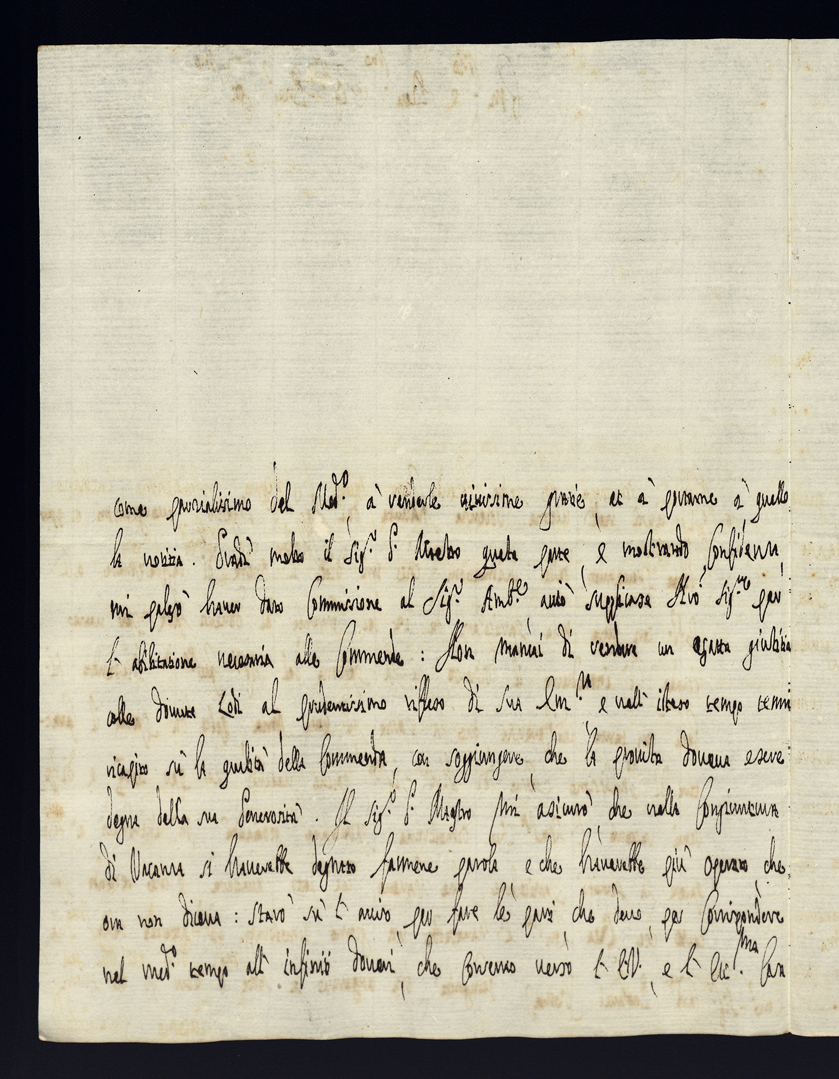 come parzialissimo del Med.º, à renderle vivissime grazie, et à portarne à quello
la notizia. Gradì molto il Sig.r G. Maestro questa parte, e mostrando Confidenza,
mi palesò haver dato Commissione al Sig.r Amb.re, acciò supplicasse N͞ro Sig.re per
l'abilitazione necessaria alle Commende: Non mancai di rendere un esatta giustizia
alle dovute Lodi al prudentissimo riflesso di Sua Em.za, e nell'istesso tempo tenni
sù la qualità della Commenda, con soggiungere, che la provista doveva essere
degna della sua Generosità. Il Sig.r G. Maestro mi assicurò, che nella Congiuntura
di Vacanza si haverebbe degnato farmene parola e che haverebbe più operato, che
ora non diceva: starò sù l'aviso, per fare le parti, che devo, per Corrispondere
nel med.º tempo all'infiniti doveri, che Conservo verso l'E.V., e l'Ecc.ma Casa